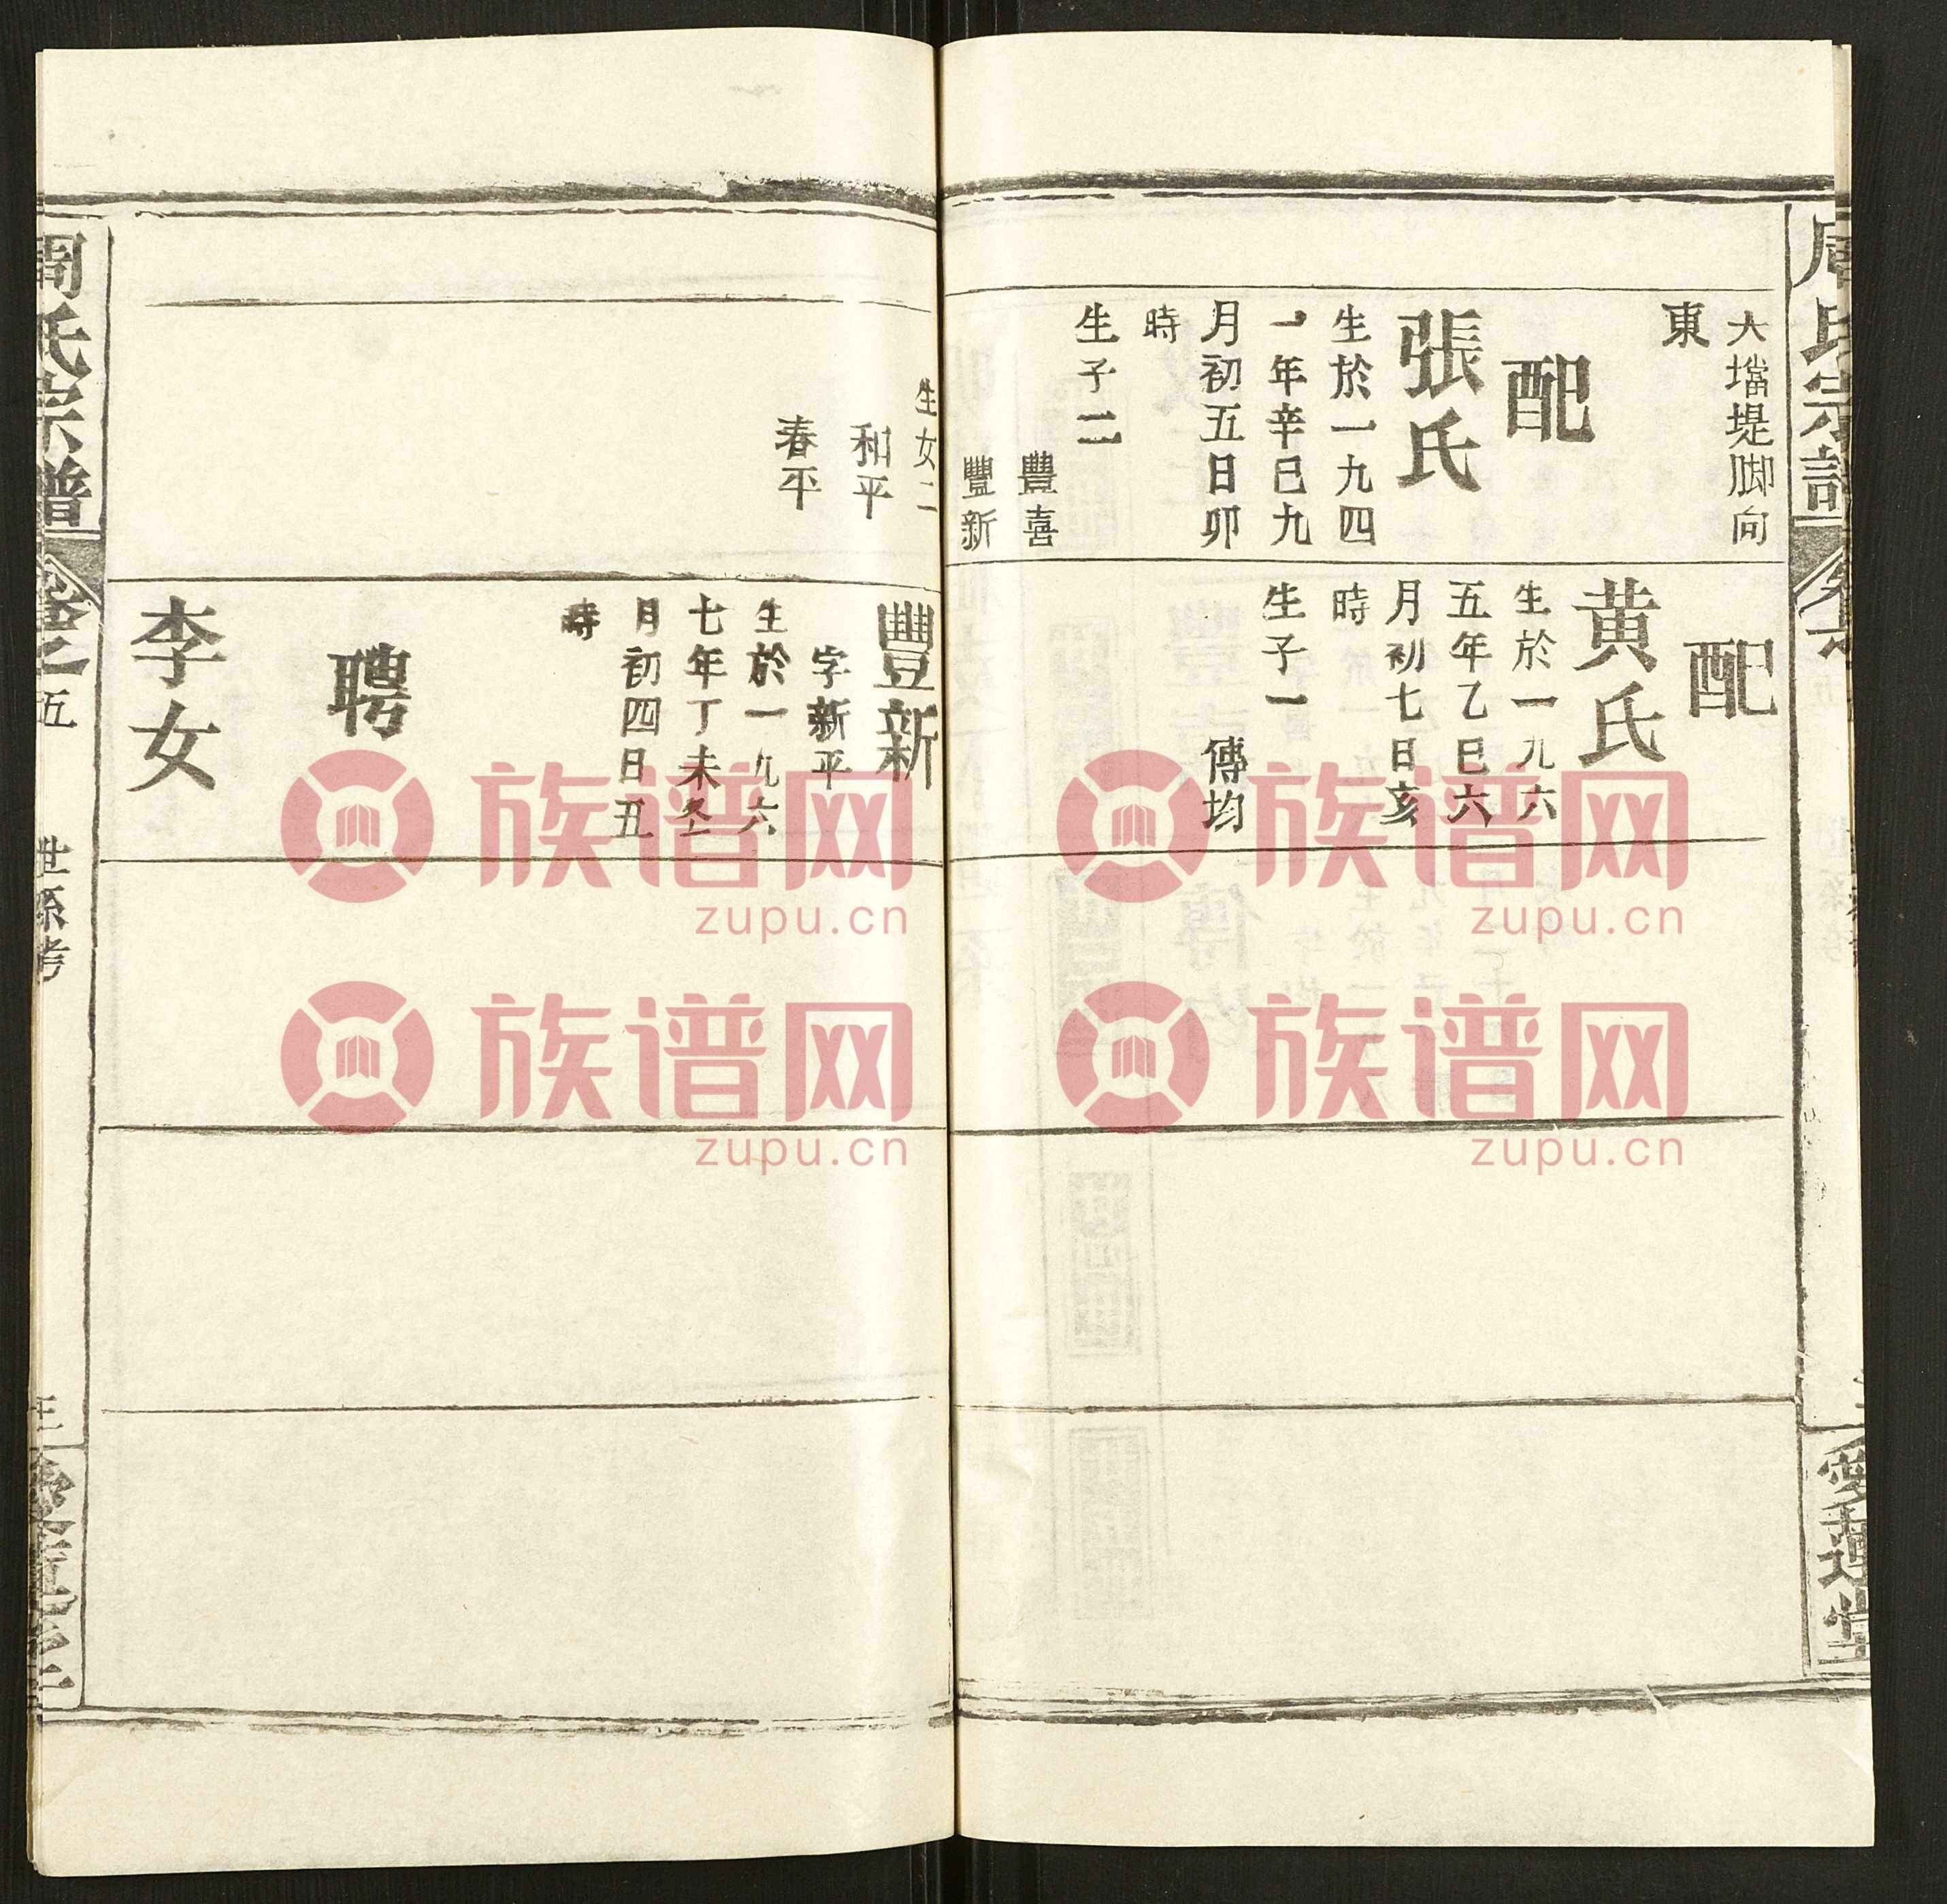 大壋堤脚向
東
配
張氏
生於一九四
一年辛巳九
月初五日卯
時
生子二
豐喜
豐新
配
黄氏
生於一九六
五年乙巳六
月初七日亥
時
生子一
傳均
愛蓮堂
生女二
和平
春平
豐新
字新平
生於一九六
七年丁未冬
月初四日丑
時
聘
李女
周氏宗譜
卷之五
世系考
族谱网
zupu.cn
族谱网
zupu.cn
族谱网
zupu.cn
族谱网
zupu.cn